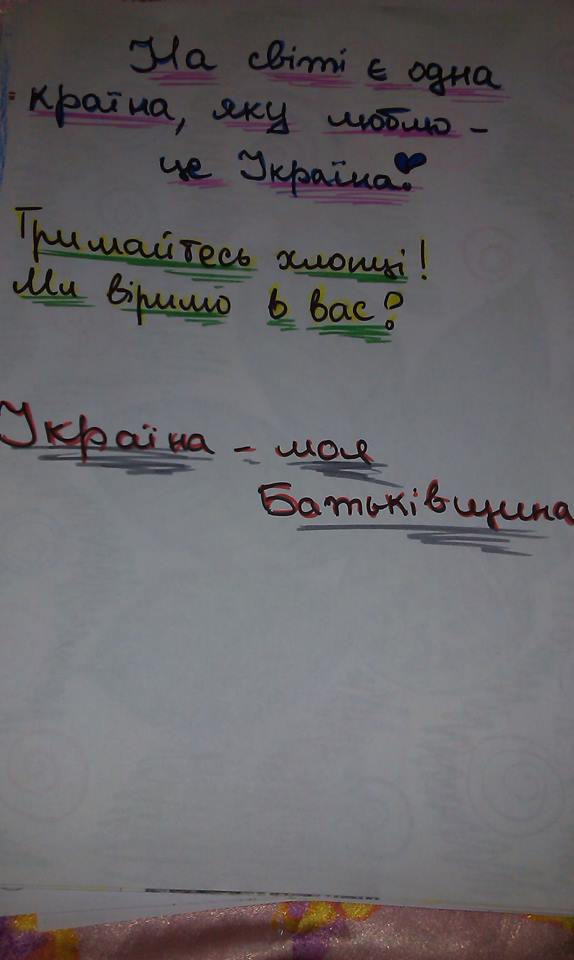 На світі є одна
країна, яку люблю -
це Україна!
Тримайтесь хлопці!
Ми віримо в вас!
Україна - моя
Батьківщина